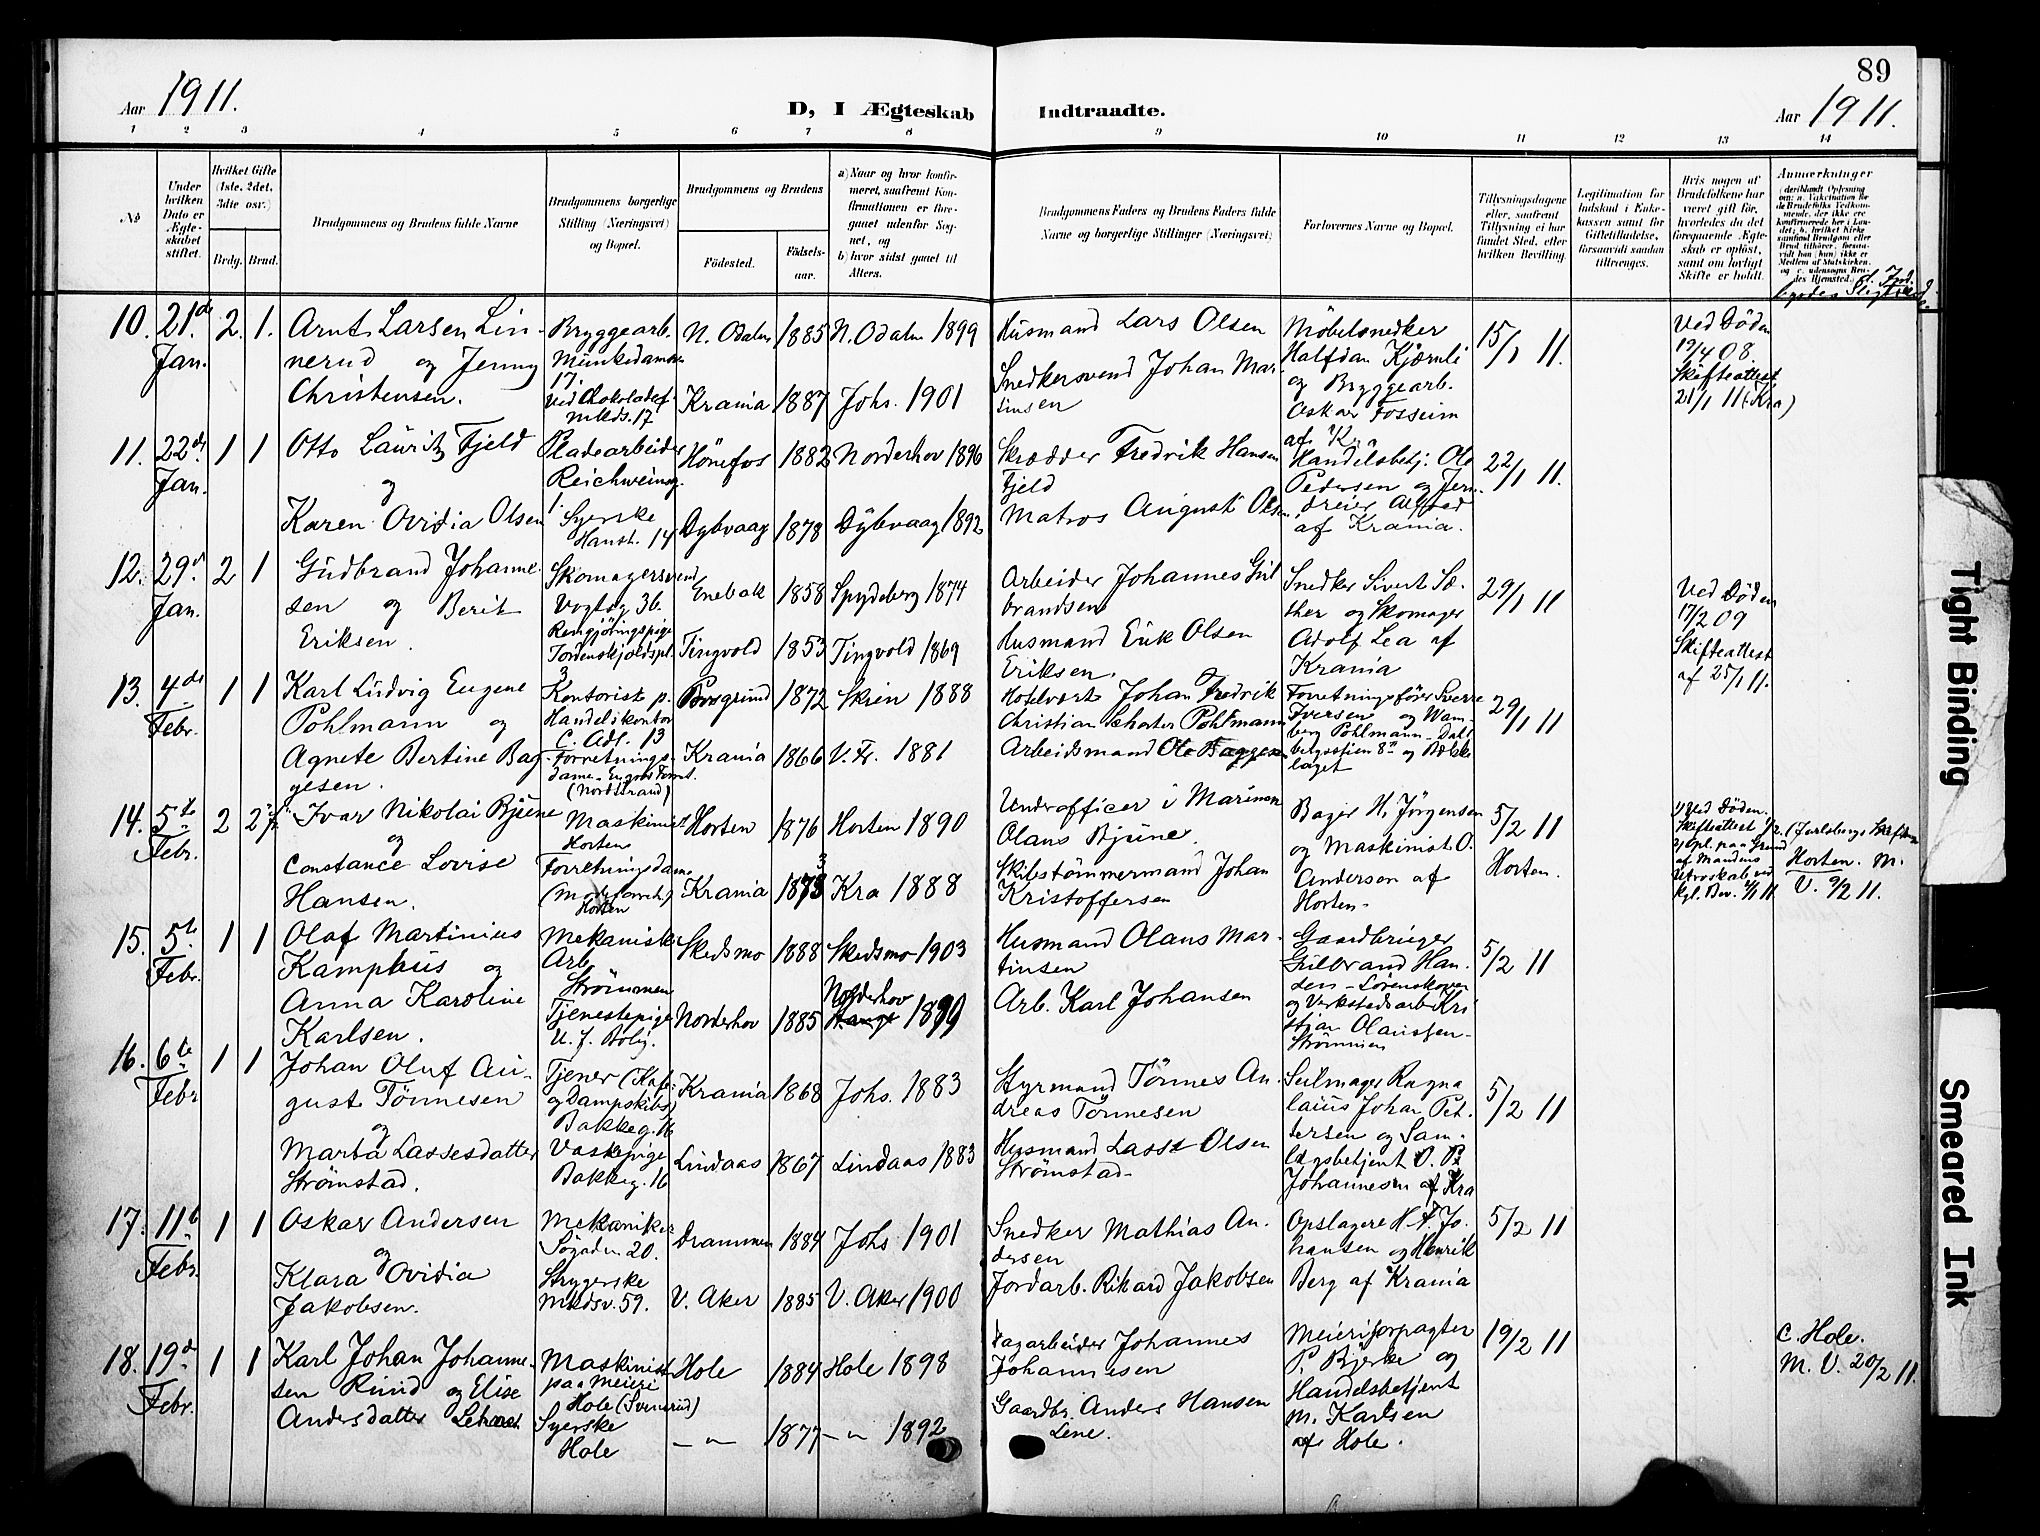 89
Aar 1911.
D, I Ægteskab Indtraadte.
Aar 1911.
1 2 3 4 5 6 7 8 9 10 11 12 13 14
No
Under hvilken Dato er Ægteskabet stiftet.
Hvilket Gifte (1ste, 2det, 3die osv.)
Brdg. Brud.
Brudgommens og Brudens fulde Navne
Brudgommens borgerlige Stilling (Næringsvei) og Bopæl.
Brudgommens og Brudens
Födested.
Födselsaar.
a) Naar og hvor konfirmeret, saafremt Konfirmationen er foregaaet udenfor Sognet, og
b) hvor sidst gaaet til Alters.
Brudgommens Faders og Brudens Faders fulde Navne og borgerlige Stillinger (Næringsvei)
Forlovernes Navne og Bopæl.
Tillysningsdagene eller, saafremt Tillysning ei har fundet Sted, efter hvilken Bevilling.
Legitimation for Indskud i Enkekassen samt for Giftetilladelse, forsaavidt saadan tiltrænges.
Hvis nogen af Brudefolkene har været gift før, hvorledes da det foregaaende Ægteskab er oplöst, samt om lovligt Skifte er holdt.
Anmærkninger
10. 21de Jan. 2. 1. Arnt Larsen Linnerud og Jenny Christensen.
Bryggearb. Munkedamsv. 17. ved Chokoladef. Mkds. 17
N. Odalen 1885 N. Odalen 1899
Krania 1887 Johs. 1901
Husmand Lars Olsen
Snedkersvend Johan Martinsen
Möbelsnedker Halfdan Kjærnli og Bryggearb. Oskar Fosseim af Kra
15/1 11.
Ved Döden 19/4 08. Skifteattest 21/1 11 (Kra)
11. 22de Jan. 1 1 Otto Lauritz Fjeld og Karen Ovidia Olsen
Pladearbeider Reichweinsg. 1.
Syerske Hanst. 14
Hönefos 1882 Norderhov 1896
Dybvaag 1878 Dybvaag 1892
Skrædder Fredrik Hansen Fjeld
Matros August Olsen
Handelsbetj. Ole Pedersen og Jerndreier Alfred af Krania.
22/1 11.
12. 29de Jan. 2 1 Gudbrand Johannesen og Berit Eriksen.
Skomagersvend Vogtsg 36.
Rengjöringspige Tordenskjoldspl. 3
Enebak 1858 Spydeberg 1874
Tingvold 1853 Tingvold 1869
Arbeider Johannes Gulbrandsen
Husmand Erik Olsen Eriksen.
Snedker Sivert Sæther og Skomager Adolf Lea af Krania
29/1 11
Ved Döden 17/2 09 Skifteattest af 25/1 11.
13. 4de Febr. 1 1 Karl Ludvig Eugene Pohlmann og Agnete Bertine Baggesen.
Kontorist p. Handelskontor C. Adl. 13
Forretningsdame (Nordstrand)
Porsgrund 1872 Skien 1888
Krania 1866 V. Fr. 1881
Hotelvert Johan Fredrik Christian Pohlmann
Arbeidsmand Ole Baggesen
Forretningsförer Sverre Iversen og Pohlmann og Bækkelaget
29/1 11
14. 5te Febr. 2 2 Ivar Nikolai Bjune og Constance Lovise Hansen.
Maskinist Horten
Forretningsdame Horten
Horten 1876 Horten 1890
Krania 1873 Kra 1888
Underofficer i Marinen Olaus Bjune.
Skibstömmermand Johan Kristoffersen
Bager H. Jörgensen og Maskinist O. Andersen af Horten.
5/2 11 Horten.
1) Ved Döden. Skifteattest
Horten. M. V. 9/2 11.
15. 5te Febr. 1 1 Olaf Martinius Kamphus og Anna Karoline Karlsen.
Mekanisk Arb. Strömmen
Tjenestepige U. f. Bolig.
Skedsmo 1888 Skedsmo 1903
Norderhov 1885 Norderhov 1899
Husmand Olaus Martinsen
Arb. Karl Johansen
Gaardbruger Gulbrand Hansen - Lörenskogen og Verkstedsarb Kristian Olaussen - Strömmen
5/2 11
16. 6te Febr 1 1 Johan Oluf August Tönnesen og Marta Lassesdatter Strömstad.
Tjener (Kafe og Dampskibs) Bakkeg. 16
Vaskepige Bakkeg. 16
Krania 1868 Johs. 1883
Lindaas 1867 Lindaas 1883
Styrmand Tönnes Andreas Tönnesen
Husmand Lasse Olsen Strömstad
Seilmager Johan Pettersen og Johannesen af Kra
5/2 11
17. 11te Febr. 1 1 Oskar Andersen og Klara Ovidia Jakobsen.
Mekaniker Sögaden 20.
Strygerske Mkdsv. 59.
Drammen 1884 Johs 1901
V. Aker 1885 V. Aker 1900
Snedker Mathias Andersen
Jordarb. Rikard Jakobsen
Opslagere Johansen og Henrik Berg af Krania
5/2 11
18. 19de Febr. 1 1 Karl Johan Johannesen Rund og Elise Andersdatter
Maskinist paa Meieri Hole (Svenerud)
Syerske Hole
Hole 1884 Hole 1898
— " — 1877 — " — 1892
Dagarbeider Johannes Johannesen
Gaardbr. Anders Hansen Lene.
Meieriforpagter P. Bjerke og Handelsbetjent M. Karlsen af Hole.
19/2 11
C. Hole. M. V. 20/2 11.
Tight Binding
Smeared Ink